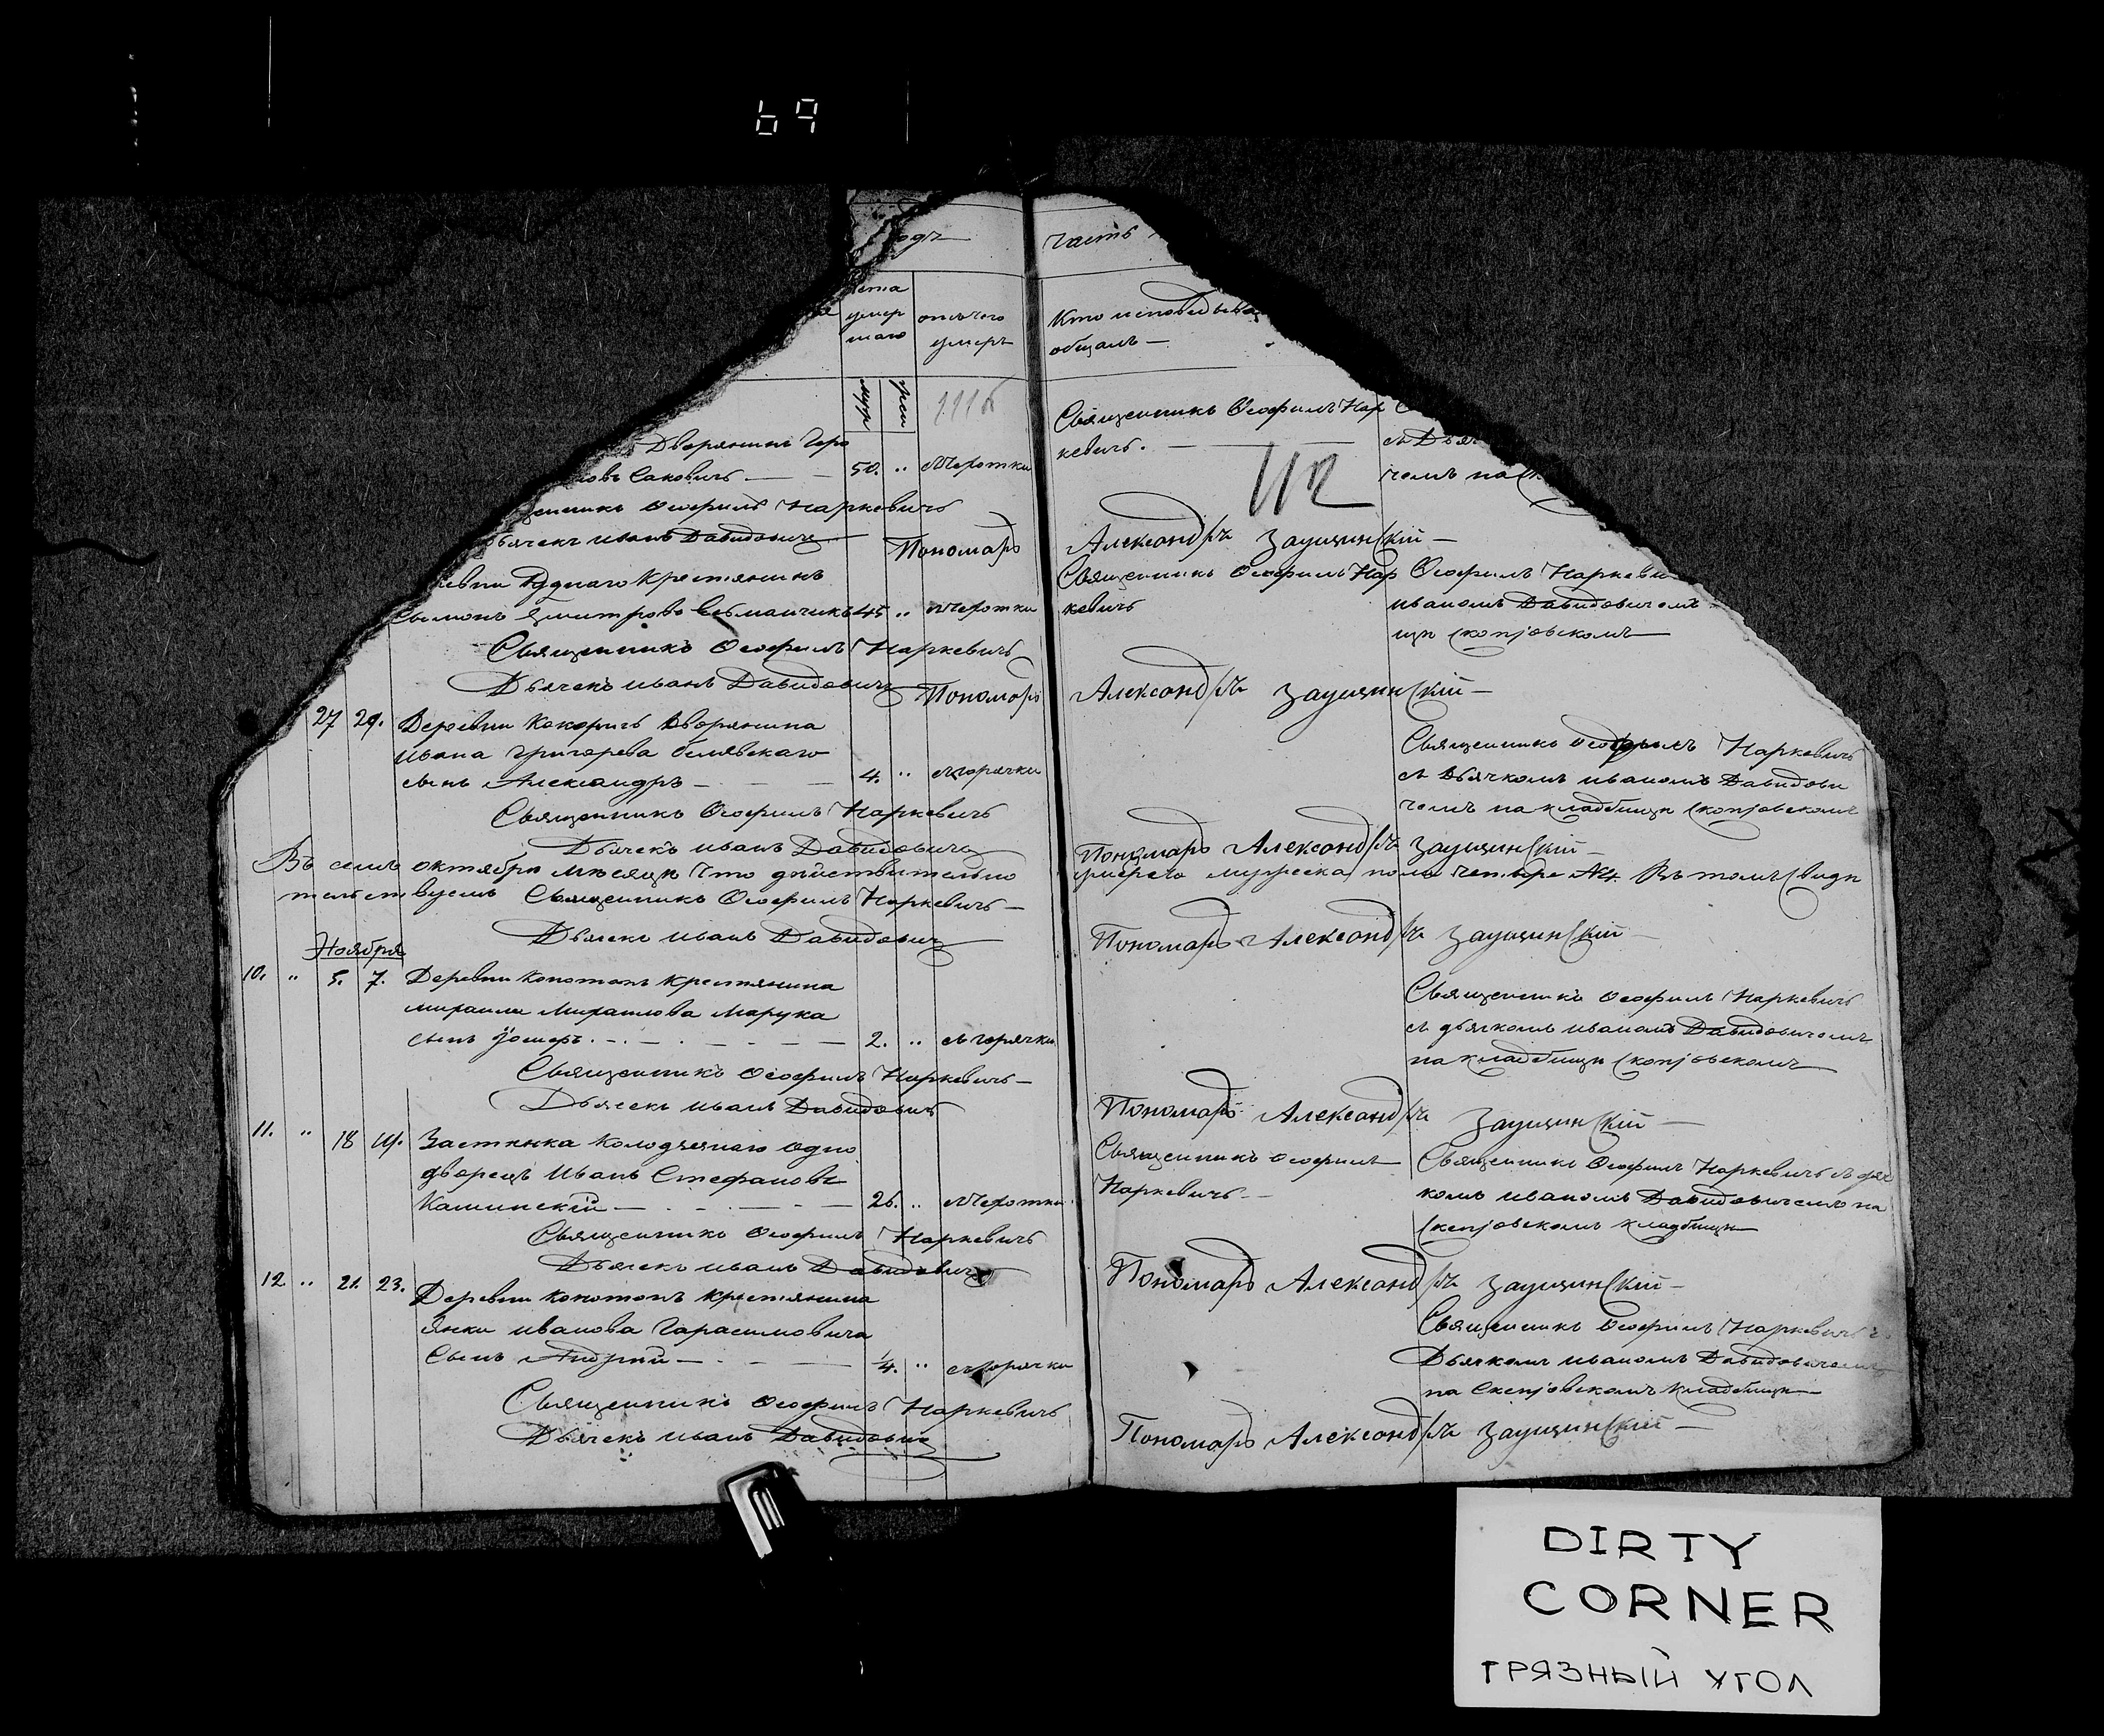 69
одъ
часть
лета
умер
шаго
отъ чего
умеръ
Кто исповедыва
общалъ —
муж
жен
Дворянинъ
овъ Саковичъ — 50. " Чахотки
Священникъ Феофилъ Нар
кевичъ. —
112
съ Дьяч
чомъ на
щенникъ Феофилъ Наркевичъ
Дьячекъ Иванъ Давидовичъ Пономарь Александръ Заущинскій —
евни Крестянинъ
Сымонъ Дмитровъ 45 " Чахотки
Священникъ Феофилъ Нар
кевичъ
Феофилъ Наркеви
Иваномъ Давидовичомъ
щи
Священникъ Феофилъ Наркевичъ
Дьячекъ Иванъ Давидовичъ Пономарь Александръ Заущинскій —
27 29. Деревни Кокоричъ Дворянина
Ивана Григорева Белявскаго
сынъ Александръ — 4. " съ горячки
Священникъ Феофилъ Наркевичъ
съ Дьячкомъ Иваномъ Давидови
чемъ на кладбищи
Священникъ Феофилъ Наркевичъ
Дьячекъ Иванъ Давидовичъ Пономарь Александръ Заущинскій —
Въ семъ октябри месяци что действительно умерсто мужеска пола четыре №4. Въ томъ свиде
тельствуемъ Священникъ Феофилъ Наркевичъ —
Дьячекъ Иванъ Давидовичъ Пономарь Александръ Заущинскій —
Ноября
10. " 5. 7. Деревни Конотопъ крестянина
михаила Михаилова Марука
сынъ — 2. " съ горячки
Священникъ Феофилъ Наркевичъ
съ дьячкомъ Иваномъ Давидовичемъ
на кладбищи
Священникъ Феофилъ Наркевичъ —
Дьячекъ Иванъ Давидовичъ Пономарь Александръ Заущинскій —
11. " 18 19. Застенка одно
дворецъ Иванъ Стефановъ
Каминскій — 26. " Чахотки
Священникъ Феофилъ
Наркевичъ —
Священникъ Феофилъ Наркевичъ съ дяч
комъ Иваномъ Давидовичемъ на
кладбищи
Священникъ Феофилъ Наркевичъ
Дьячекъ Иванъ Давидовичъ Пономарь Александръ Заущинскій —
12 " 21. 23. Деревни Конотопъ крестянина
Янки Иванова Гарасимовича
Сынъ Андрей — 1/4. " съ горячки
Священникъ Феофилъ Наркевичъ
Дьячкомъ Иваномъ Давидовичемъ
на кладбищи
Священникъ Феофилъ Наркевичъ
Дьячекъ Иванъ Давидовичъ Пономарь Александръ Заущинскій —
DIRTY
CORNER
ГРЯЗНЫЙ УГОЛ